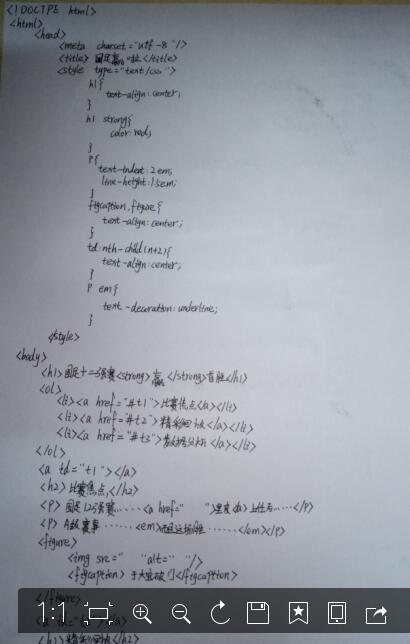 <!DOCTPE html>
<html>
<head>
<meta charset="utf-8"/>
<title>国足赢啦</title>
<style type="text/css">
h1{
text-align:center;
}
h1 strong{
color:red;
}
p{
text-indent:2em;
line-height:1.5em;
}
figcaption,figure{
text-align:center;
}
td:nth-child(n+2){
text-align:center;
}
p em{
text-decoration:underline;
}
</style>
<body>
<h1>国足十二强赛<strong>赢</strong>首胜</h1>
<ol>
<li><a href="#t1">比赛焦点</a></li>
<li><a href="#t2">精彩回放</a></li>
<li><a href="#t3">数据分析</a></li>
</ol>
<a td="t1"></a>
<h2>比赛焦点</h2>
<p>国足12强赛……<a href=" ">里皮</a>上任后……</p>
<p>A级赛事……<em>……</em></p>
<figure>
<img src=" "alt=" "/>
<figcaption>于大宝破门</figcaption>
</figure>
1:1
</h2>